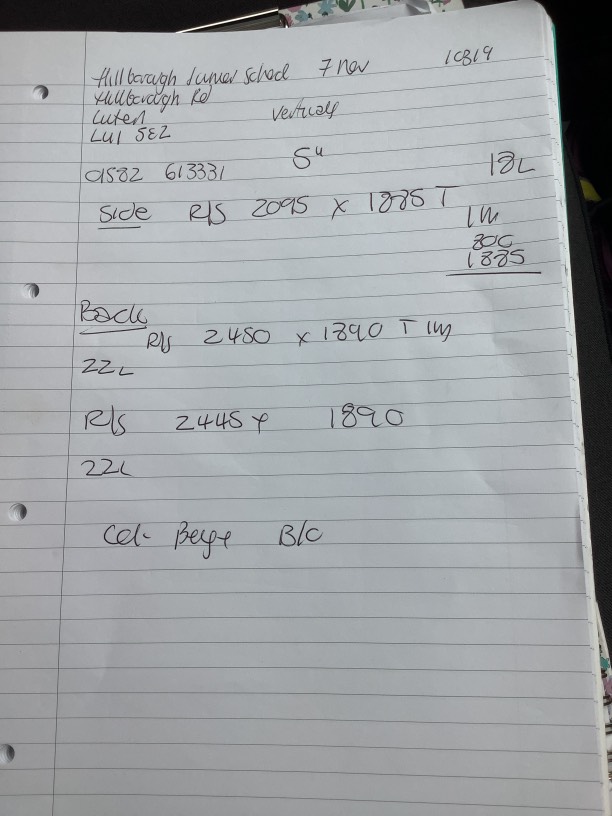 Hillborough Junior School 7 Nov 10819
Hillborough Rd
Luton Verticals
LU1 5EZ
5"
01582 613331 18L
Side R/S 2095 x 1885 T
1m
800
1885
Back
R/S 2480 x 1890 T 1m
22L
R/S 2445 x 1890
22L
Col- Beige B/C